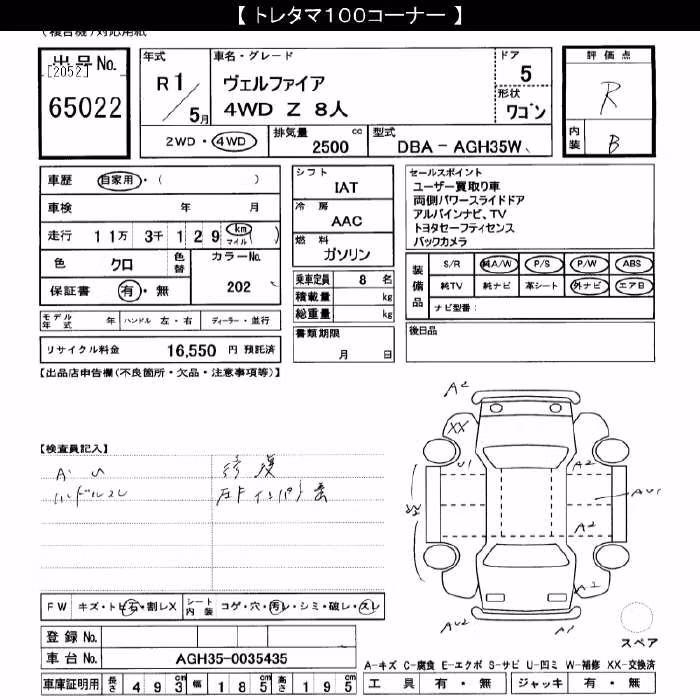 【 トレタマ100コーナー 】
(複合機)対応用紙
出品No.
[2052]
65022
年式
R1/5月
車名・グレード
ヴェルファイア
4WD Z 8人
ドア
5
形状
ワゴン
2WD・4WD
排気量 2500 cc
型式 DBA-AGH35W
評価点
R
内装
B
車歴 自家用・( )
車検 年 月
走行 11万 3千 129 km マイル )
色 クロ
色替
カラーNo.
202
保証書 有・無
モデル年式 年 ハンドル 左・右 ディーラー・並行
リサイクル料金 16,550 円 預託済
シフト
IAT
冷房
AAC
燃料
ガソリン
乗車定員 8 名
積載量 kg
総重量 kg
書類期限
月 日
セールスポイント
ユーザー買取り車
両側パワースライドドア
アルパインナビ、TV
トヨタセーフティセンス
バックカメラ
装備品
S/R 純A/W P/S P/W ABS
純TV 純ナビ 革シート 外ナビ エアB
ナビ型番:
後日品
【出品店申告欄(不良箇所・欠品・注意事項等)】
【検査員記入】
A・U
ハンドルスレ
修復
FW キズ・トビ石・割レX
シート内装 コゲ・穴・汚レ・シミ・破レ・スレ
登録No.
車台No. AGH35-0035435
車庫証明用 長さ 493 幅 185 高さ 195
A2
XX
U1
A2
AU1
A2
A2
AU2
A1
スペア
A-キズ C-腐食 E-エクボ S-サビ U-凹ミ W-補修 XX-交換済
工具 有・無 ジャッキ 有・無